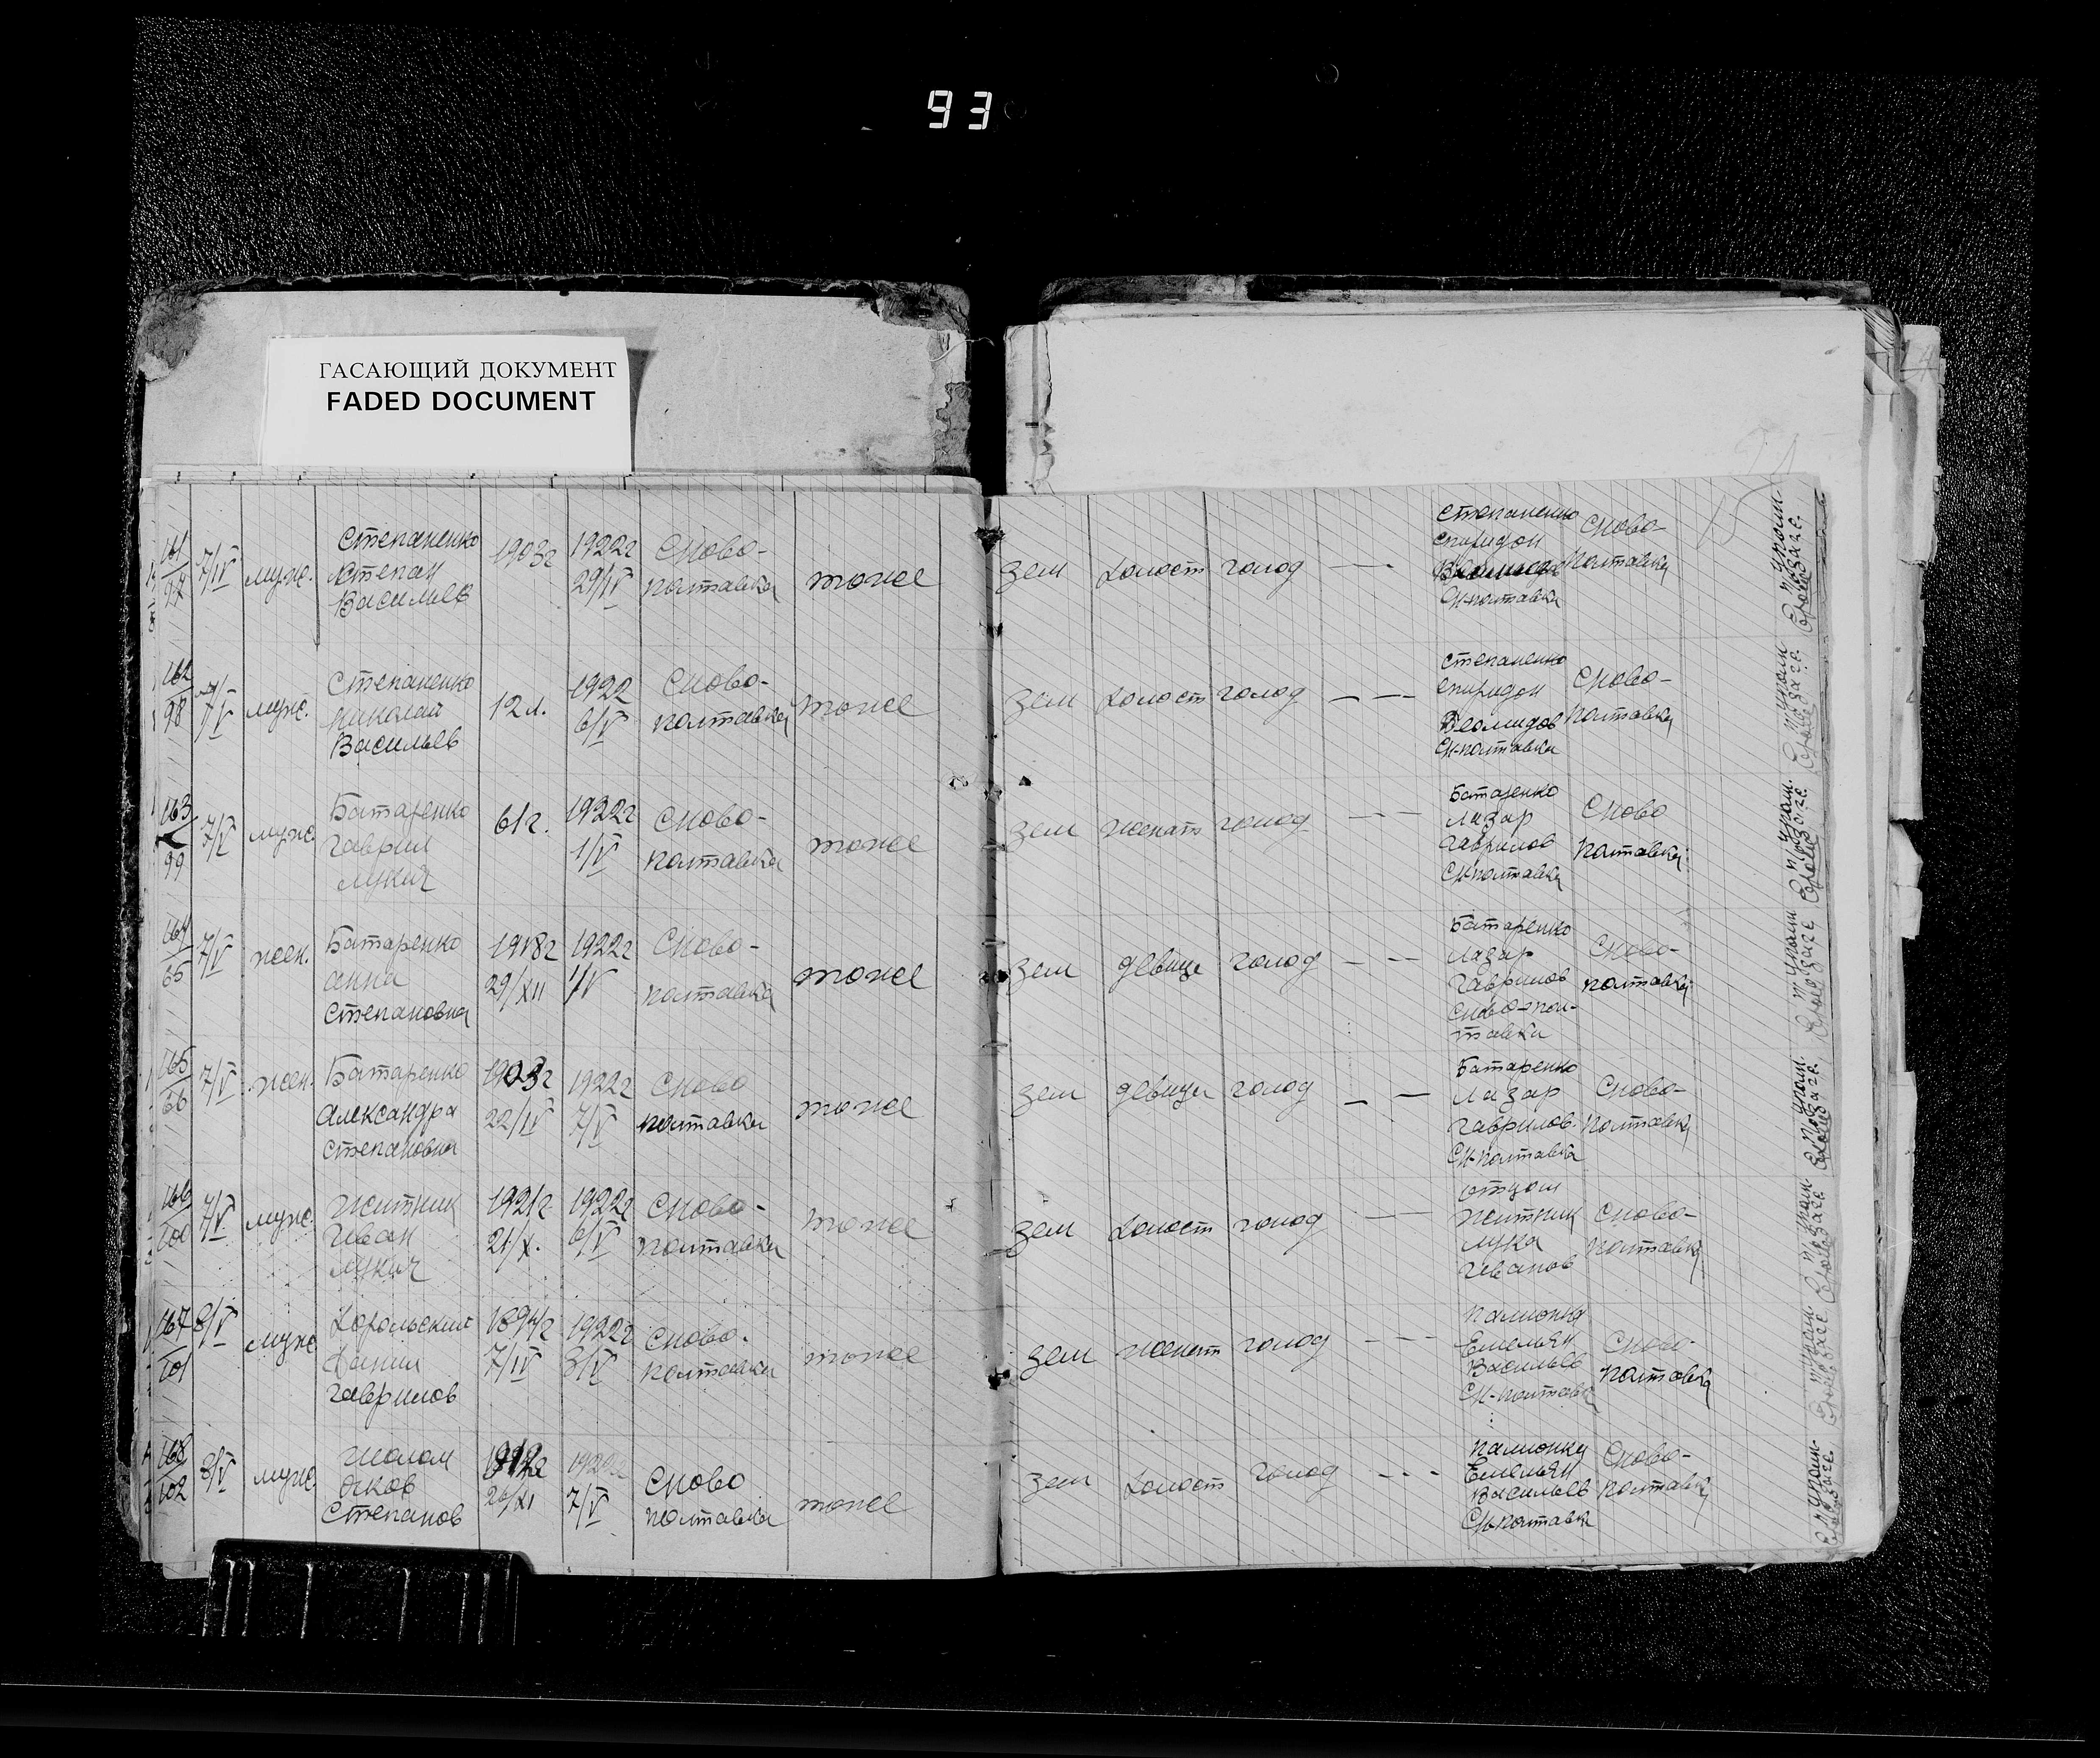 93
ГАСАЮЩИЙ ДОКУМЕНТ
FADED DOCUMENT
161
97
7/IV
муж.
Степаненко
Степан
Васильев
1903г
1922г
29/IV
Сново-
полтавка
тоже
зем
холост
голод
Степаненко
Спиридон
Сн-полтавка
Сново-
полтавка
162
98
7/V
муж.
Степаненко
Николай
Васильев
12 л.
1922
6/V
Сново-
полтавка
тоже
зем
холост
голод
Степаненко
Спиридон
Веомидов
Сн-полтавка
Сново-
полтавка
163
99
7/V
муж.
Батаренко
Гаврил
Лукич
61г.
1922г
1/V
Сново-
полтавка
тоже
зем
женат
голод
Батаренко
Лазар
Гаврилов
Сн-полтавка
Сново
полтавка
164
65
7/V
жен.
Батаренко
Анна
Степановна
1918г
29/XII
1922г
1/V
Сново-
полтавка
тоже
зем
девица
голод
Батаренко
Лазар
Гаврилов
Сново-пол-
тавки
Сново-
полтавка
165
66
7/V
жен.
Батаренко
Александра
Степановна
1903г
22/IV
1922г
7/V
Сново
полтавка
тоже
зем
девица
голод
Батаренко
Лазар
Гаврилов.
Сн-полтавка
Сново-
полтавка
166
100
7/V
муж.
Житник
Иван
Лукич
1921г.
21/X.
1922г
6/V
Сново-
полтавка
тоже
зем
холост
голод
отцом
Житник
Лука
Иванов
Сново-
полтавка
167
101
8/V
муж.
Хорольский
Данил
Гаврилов
1894г
7/IV
1922г
8/V
Сново-
полтавка
тоже
зем
женат
голод
Палионка
Емельян
Васильев
Сн-полтавка
Сново-
полтавка
168
102
8/V
муж.
Яков
Степанов
1912г
1922г
7/V
Сново
полтавка
тоже
зем
холост
голод
Палионка
Емельян
Васильев
Сн-полтавка
Сново-
полтавка
15